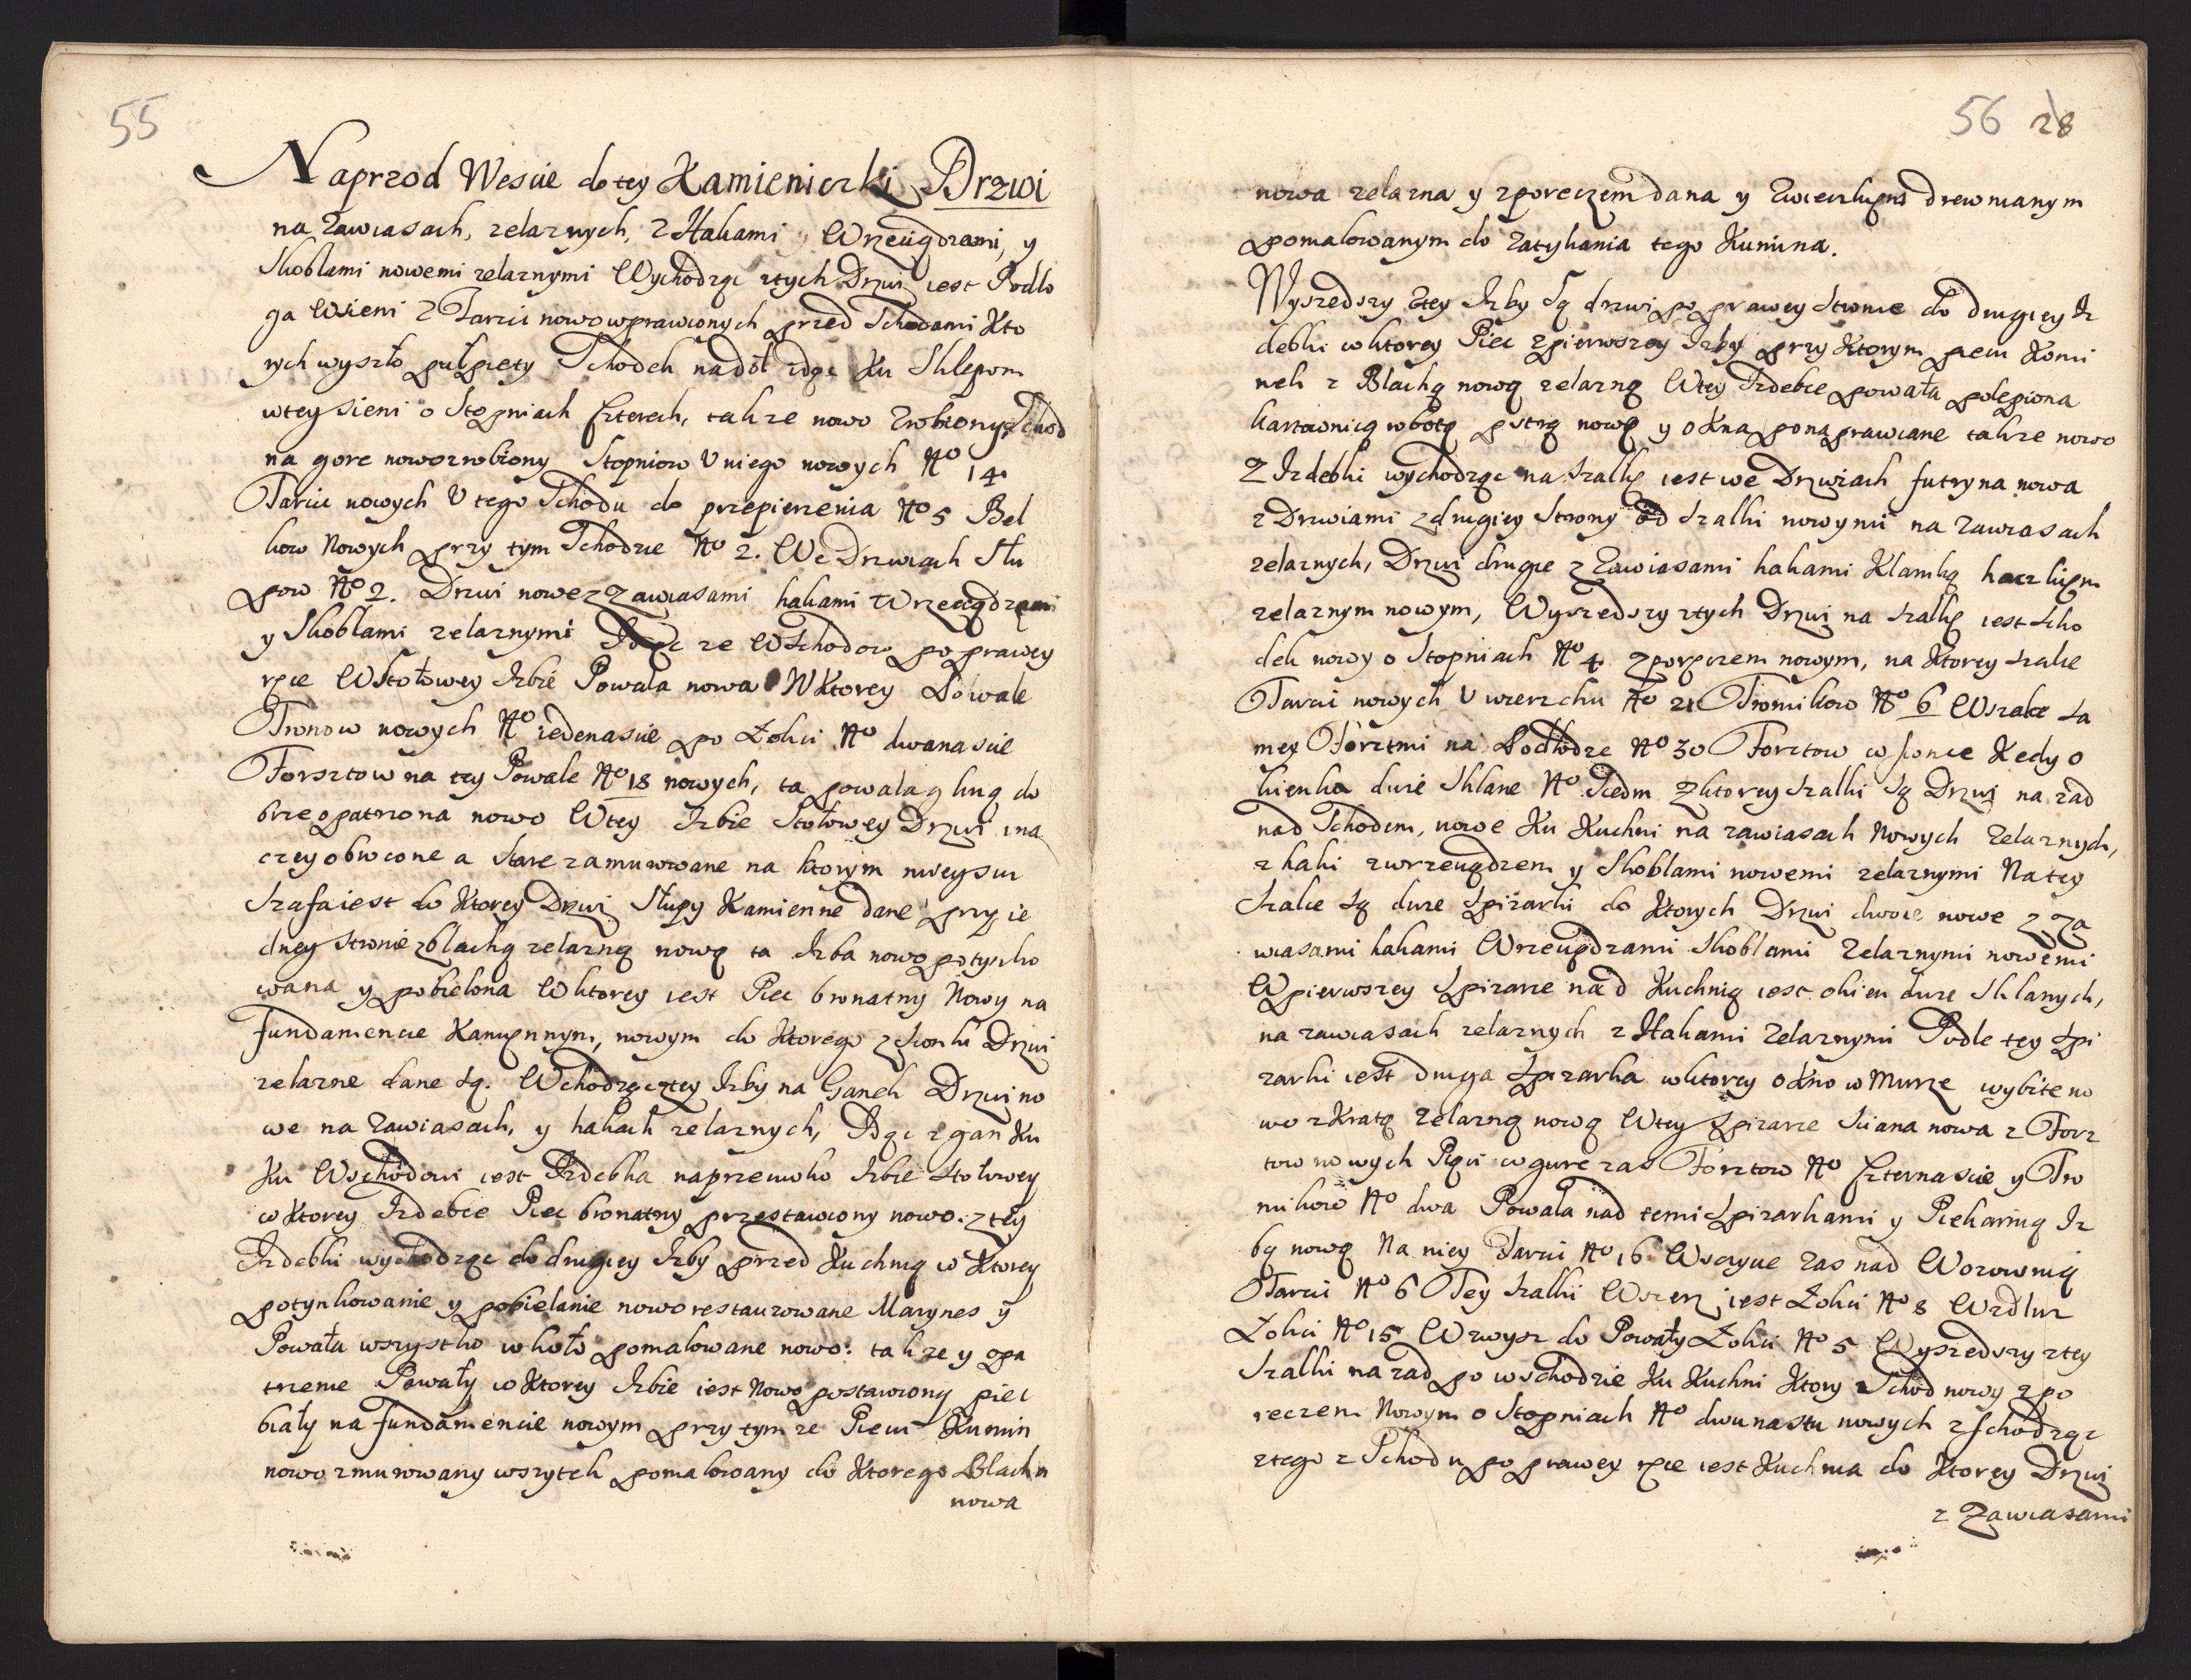 55
Naprzod Wescie do tey Kamieniczki Drzwi
na Zawiasach, zelaznych, z Hakami, Wrzeciądzami, y
Skoblami nowemi zelaznymi Wychodząc ztych Drzwi iest Podło
ga Wsieni z Tarcic nowo wprawionych przed Schodami Kto
rych wyszło pułpięty Schodek nadół idąc Ku Sklepom
wtey sieni o Stopniach Czterech, takze nowo Zrobiony, Schod
na gore nowo zrobiony Stopniow U niego nowych No 14
Tarcic nowych U tego Schodu do przepierzenia No 5 Bel
kow Nowych przy tym Schodzie No 2. We Drzwiach Słu
pow No 2. Drzwi nowe z Zawiasami hakami Wrzeciądzami
y Skoblami zelaznymi Idąc ze Wschodow po prawey
ręce WStołowey Izbie Powała nowa W Ktorey Powale
Tronow nowych No iedenascie po Łokci No dwanascie
Forsztow na tey Powale No 18 nowych, ta powała gliną do
brze opatrzona nowo Wtey Izbie Stołowey Drzwi ina
czey obrocone a Stare zamurowane na ktorym mieyscu
Szafa iest do Ktorey Drzwi Słupy Kamienne dane przy ie
dney stronie z blachą zelazną nową ta Izba nowo potynko
wana y pobielona Wktorey iest Piec bronatny Nowy na
fundamencie Kamiennym, nowym do Ktorego z Sionki Drzwi
zelazne dane są. Wchodząc ztey Izby na Ganek Drzwi no
we na Zawiasach, y hakach zelaznych, Idąc z gan Ku
Ku Wschodowi iest Izdebka naprzeciwko Izbie Stołowey
w Ktorey Izdebce Piec bronatny przestawiony nowo: z tey
Izdebki wychodząc do drugiey Izby przed Kuchnią w Ktorey
potynkowanie y pobielanie nowo restaurowane Marynes y
Powała wszystko wkoło pomalowane nowo: takze y opa
trzenie Powały w Ktorey Izbie iest Nowo postawiony piec
biały na fundamencie nowym przy tymze Piecu Kumin
nowo zmurowany wszytek pomalowany do Ktorego Blacha
nowa
56 28
nowa zelazna y zporeczem dana y Zwierciłkiem drewnianym
pomalowanym do Zatykania tego Kumina.
Wyszedszy Ztey Izby Są drzwi po prawey stronie do drugiey Iz
debki wktorey Piec z pierwszey Izby przy Ktorym piecu Komi
nek z Blachą nową zelazną Wtey Izdebce powała polepiona
kartownicą robotą pstrą nową y okna ponaprawiane takze nowo
Z Izdebki wychodząc na Szalkę iest we Drzwiach futryna nowa
z Drzwiami z drugiey Strony od Szalki nowymi na zawiasach
zelaznych, Drzwi drugie z Zawiasami hakami Klamką haczkiem
zelaznym nowym, Wyszedszy ztych Drzwi na szalkę iest Scho
dek nowy o Stopniach No 4 z poręczem nowym, na Ktorey szalce
Tarcic nowych U wierzchu No 21 Tromikow No 6 Wszalce Sa
mey Forztmi na Podłodze No 30 Forztow w Sionce Kedy o
kienka duze Szklane No Siedm z ktorey szalki Są Drzwi na zad
nad Schodem, nowe Ku Kuchni na zawiasach Nowych Zelaznych,
z haki zwrzeciądzem y Skoblami nowemi zelaznymi Na tey
Szalce Są dwie Spizarki do Ktorych Drzwi dwoie nowe z Za
wiasami hakami Wrzeciądzami Skoblami Zelaznymi nowemi
W pierwszey Spizarce nad Kuchnią iest okien dwie Szklanych,
na zawiasach zelaznych z Hakami Zelaznymi Podle tey Spi
zarki iest druga Spizarka wktorey okno w Murze wybite no
wo z Kratą zelazną nową Wtey Spizarce Sciana nowa z Forz
tow nowych Pięci wgurze zas Forztow No Czternascie y Tro
mikow No dwa Powała nad temi Spizarkami y Piekarnią Iz
bą nową Na niey Tarcic No 16 Wscycie Zas nad Wozownią
Tarcic No 6 Tey Szalki Wszerz iest Łokci No 8 Wzdłuz
Łokci No 15 Wzwysz do Powały Łokci No 5 Wyszedszy ztey
Szalki na zad po wschodzie Ku Kuchni Ktory Schod nowy z po
reczem Nowym o Stopniach No dwunastu nowych zschodząc
ztego z Schodu po prawey ręce iest Kuchnia do Ktorey Drzwi
z Zawiasami